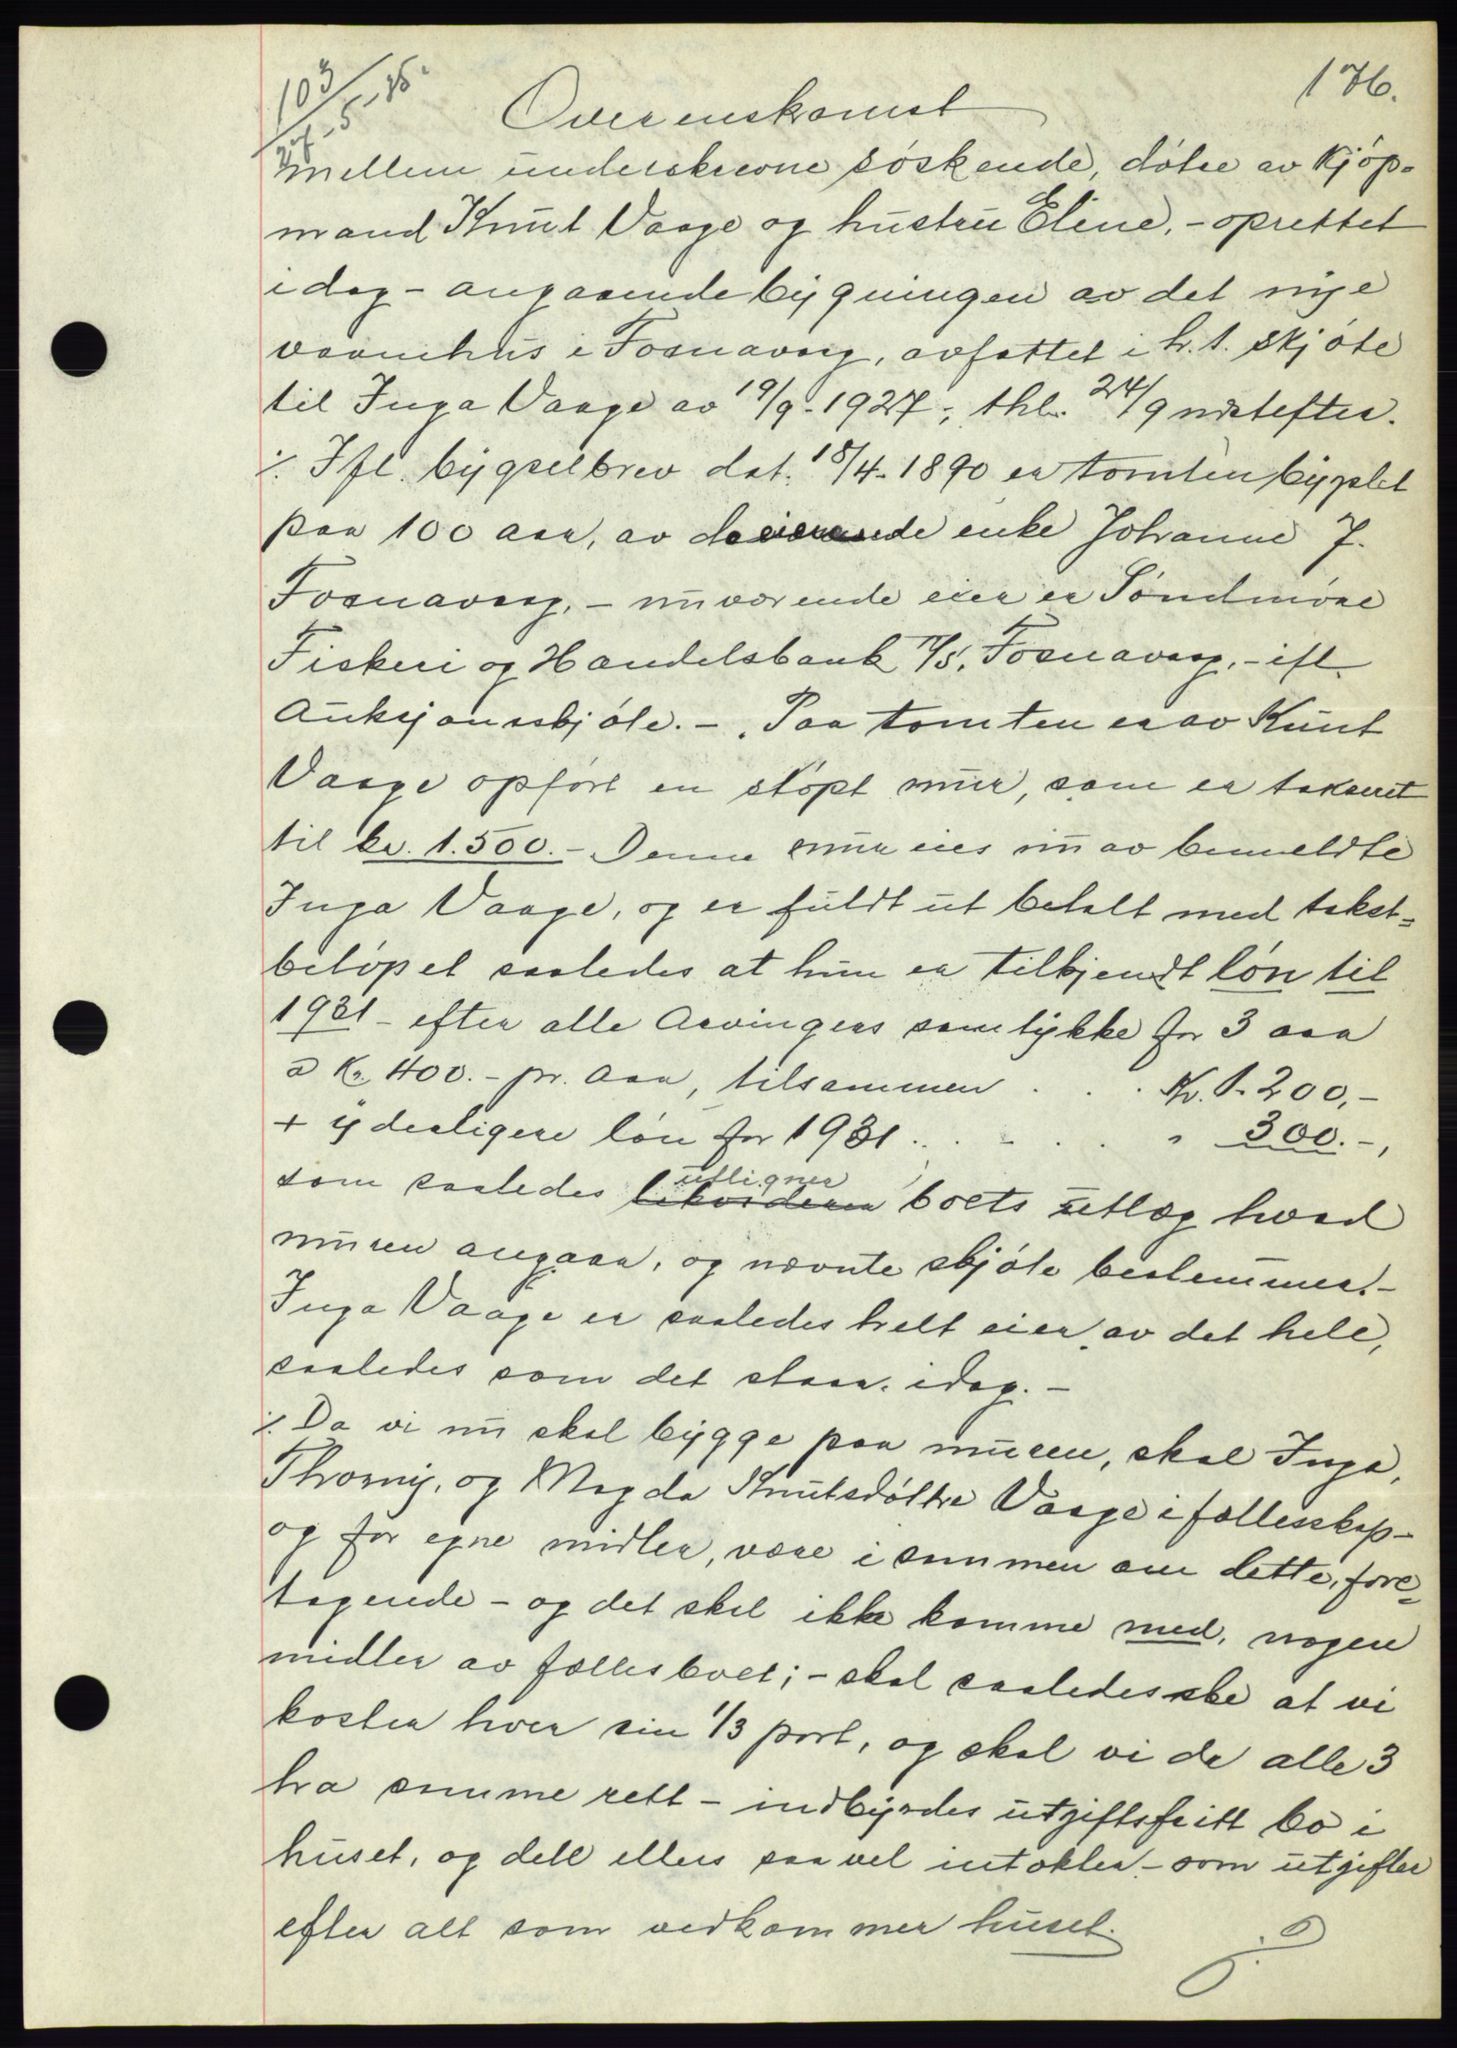 103
27-5-35.
176.
Overenskomst
mellem underskrevne søskende, døtre av kjöp-
mand Knut Vaage og hustru Eline, - oprettet
i dag - angaaende bygningen av det nye
vaanehus i Fosnavaag, avfattet i h. t. skjöte
til Inga Vaage av 19/9-1927, thl. 24/9 næstefter.
⁒ Ifl. bygselbrev dat. 18/4-1890 er tomten bygslet
paa 100 aar, av daværende enke Johanne J.
Fosnavaag, - nuværende eier er Söndmöre
Fiskeri og Handelsbank A/S, Fosnavaag, - ifl.
Auksjonsskjöte. - Paa tomten er av Knut
Vaage opfört en stöpt mur, som er takseret
til kr. 1.500.- Denne mur eies nu av bemeldte
Inga Vaage, og er fuldt ut betalt med takst-
belöpet saaledes at hun er tilkjendt lön til
1931 - efter alle Arvingers samtykke for 3 aar
a Kr. 400.- pr. Aar, tilsammen . . . Kr. 1.200,-
+ yderligere lön for 1931 . . . . . " 300.-,
som saaledes utligner boets utlæg hvad
muren angaar, og nævnte skjöte bestemmer.-
Inga Vaage er saaledes helt eier av det hele,
saaledes som det staar idag. -
⁒ Da vi nu skal bygge paa muren, skal Inga,
Thorny, og Magda Knutsdöttre Vaage i fællesskap-
og for egne midler, være i sammen om dette fore-
tagende - og det skal ikke komme med, nogen
midler av fællesboet; - skal saaledes ske at vi
koster hver sin 1/3 part, og skal vi da alle 3
ha samme rett - indbyrdes utgiftsfritt bo i
huset, og dele ellers saavel intækter - som utgifter
efter alt som vedkommer huset.